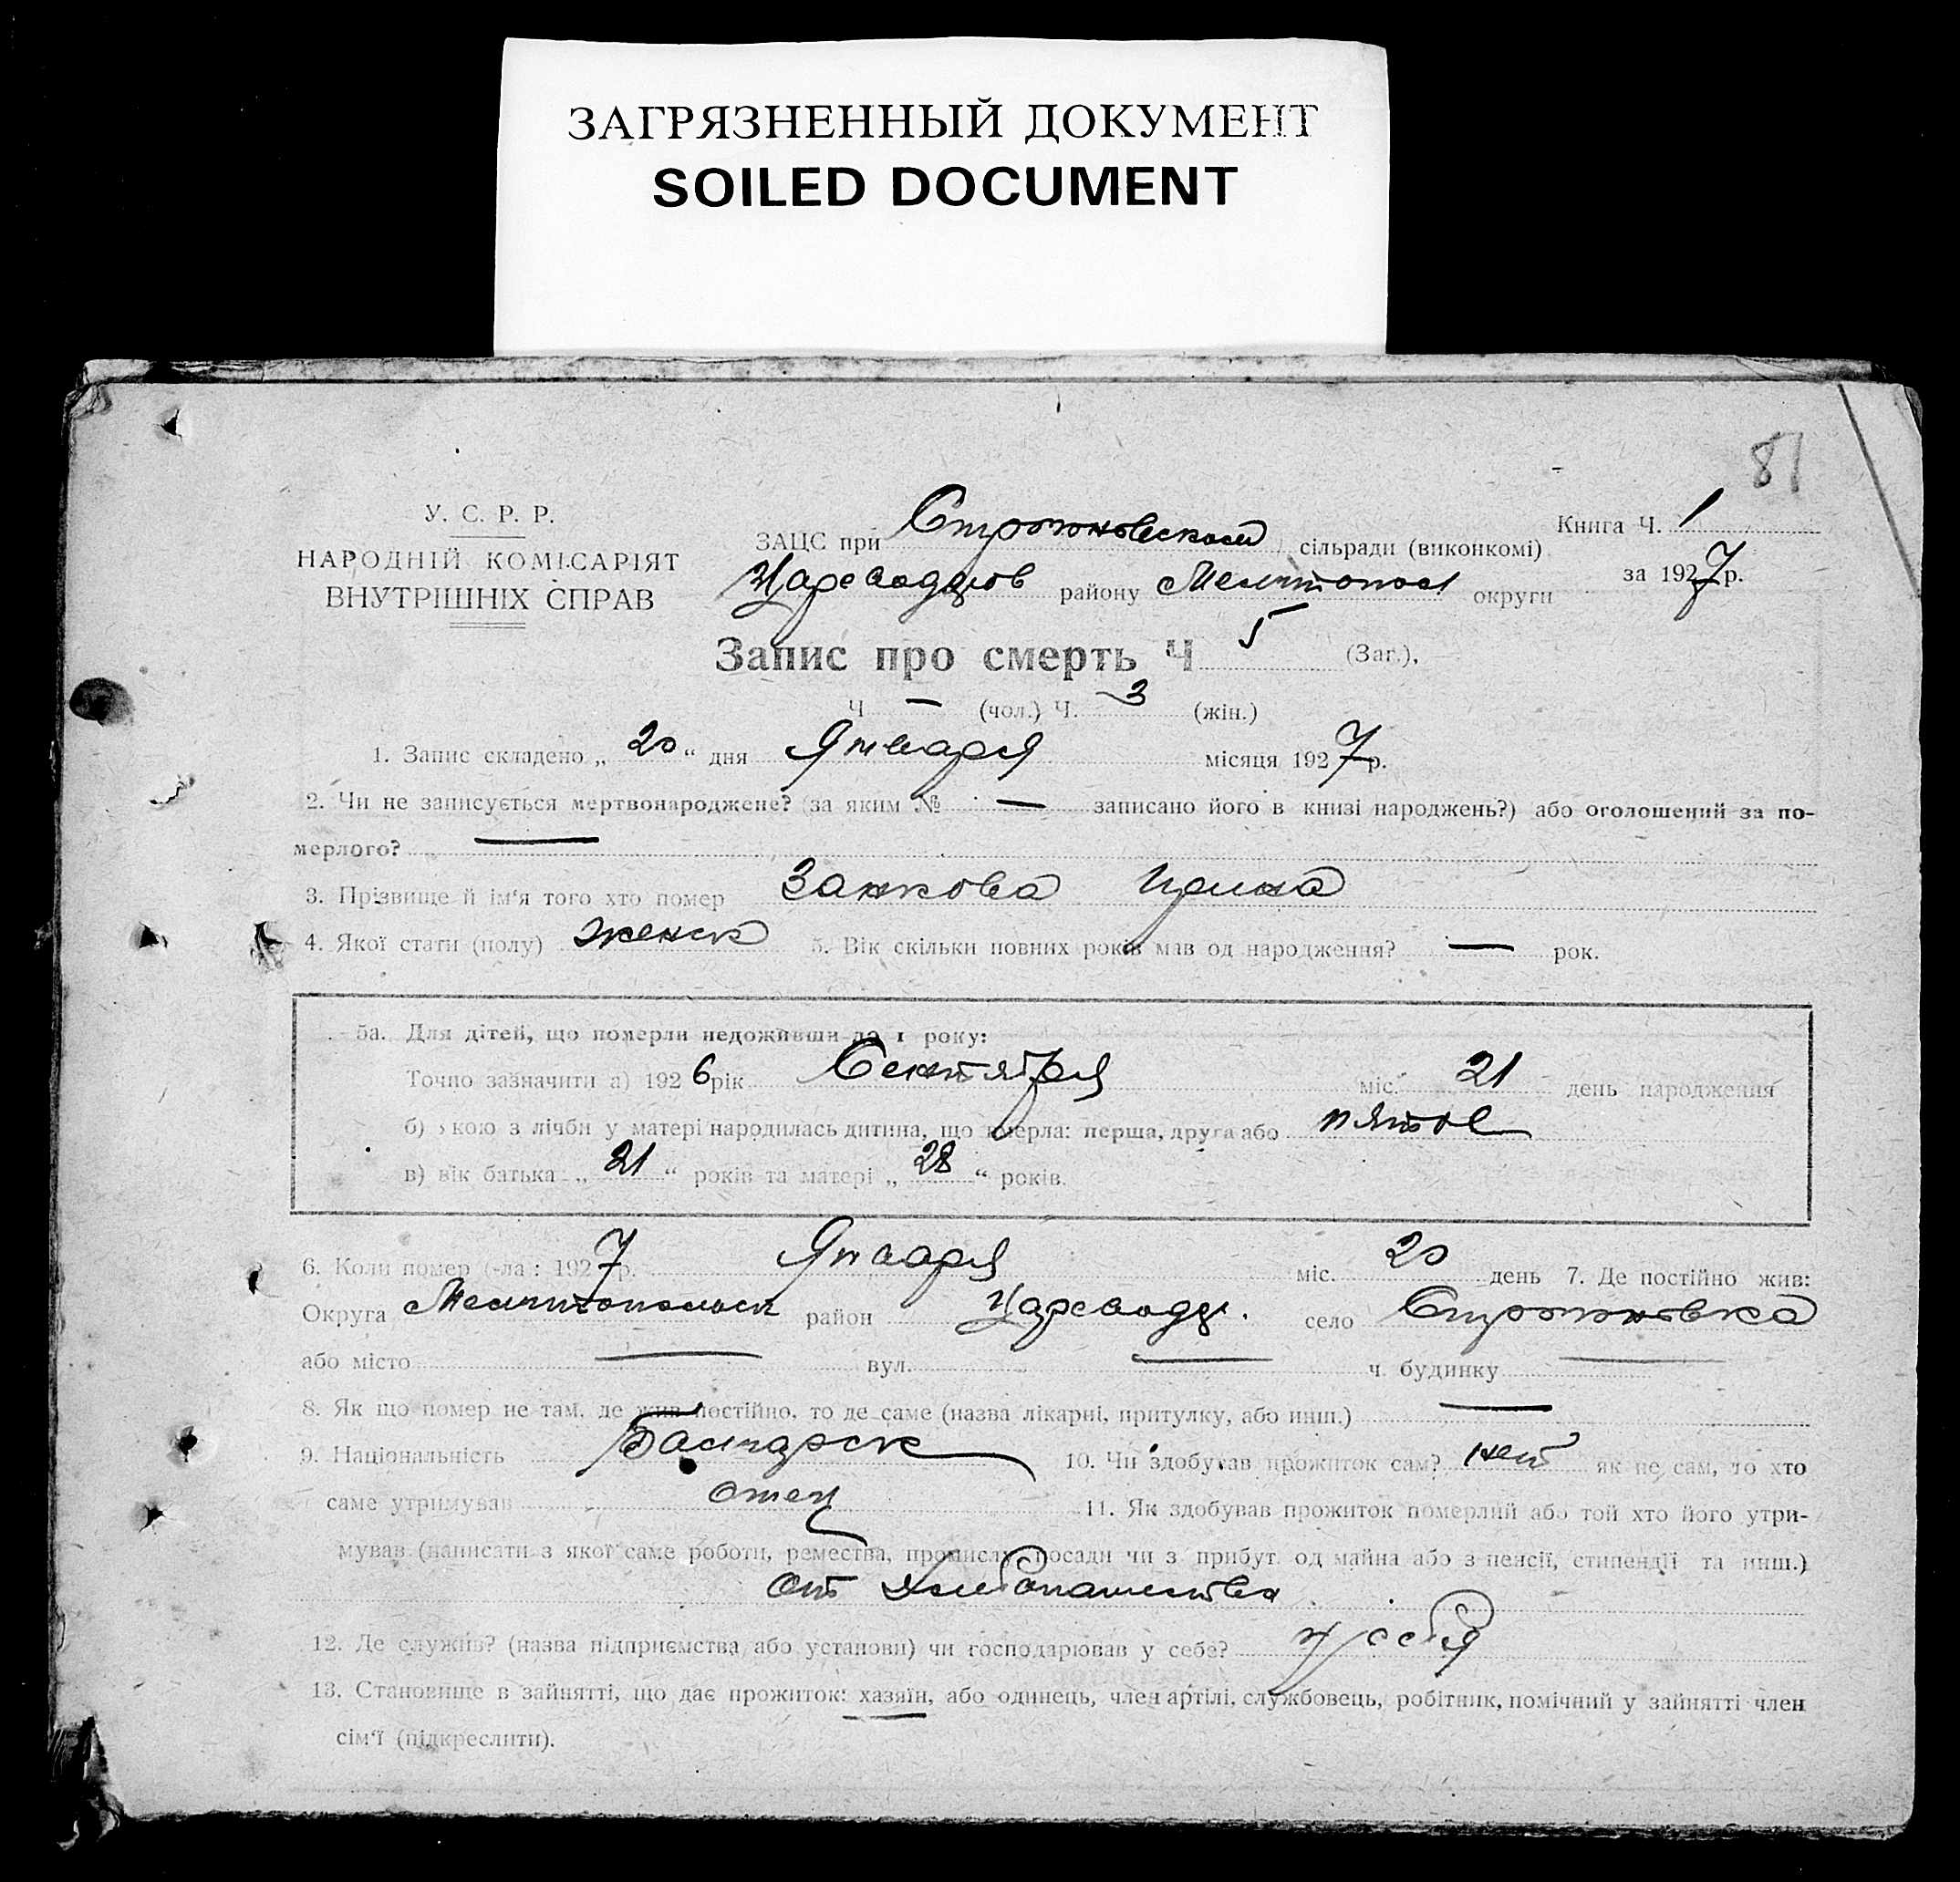 ЗАГРЯЗНЕННЫЙ ДОКУМЕНТ
SOILED DOCUMENT
81
У. С. Р. Р.
НАРОДНІЙ КОМІСАРІЯТ
ВНУТРІШНІХ СПРАВ
ЗАЦС при Строгоновском сільради (виконкомі)
Книга Ч. 1
Цареводдов району Мелитопол округи
за 1927 р.
Запис про смерть Ч 5 (Заг.),
Ч — (чол.) Ч. 3 (жін.)
1. Запис складено „ 20 “ дня Января місяця 1927 р.
2. Чи не записується мертвонароджене? (за яким № — записано його в книзі народжень?) або оголошений за по-
мерлого? —
3. Прізвище й ім'я того хто помер Занкова Ирина
4. Якої стати (полу) женск 5. Вік скільки повних років мав од народження? — рок.
5а. Для дітей, що померли недоживши до 1 року:
Точно зазначити а) 1926 рік Сентября міс. 21 день народження
б) якою з лічби у матері народилась дитина, що вмерла: перша, друга або пятое
в) вік батька „ 21 “ років та матері „ 28 “ років.
6. Коли помер (-ла: 1927 р. Января міс. 20 день 7. Де постійно жив:
Округа Мелитопольск район Цареводд. село Строгоновка
або місто — вул. — ч. будинку —
8. Як що помер не там, де жив постійно, то де саме (назва лікарні, притулку, або инш.) —
9. Національність Болгарск 10. Чи здобував прожиток сам? нет як не сам, то хто
саме утримував отец 11. Як здобував прожиток померлий або той хто його утри-
мував (написати з якої саме роботи, ремества, промисла, посади чи з прибут. од майна або з пенсії, стипендії та инш.)
от хлебопашества
12. Де служив? (назва підприємства або установи) чи господарював у себе? у себя
13. Становище в зайнятті, що дає прожиток: хазяїн, або одинець, член артілі, службовець, робітник, помічний у зайнятті член
сім'ї (підкреслити).